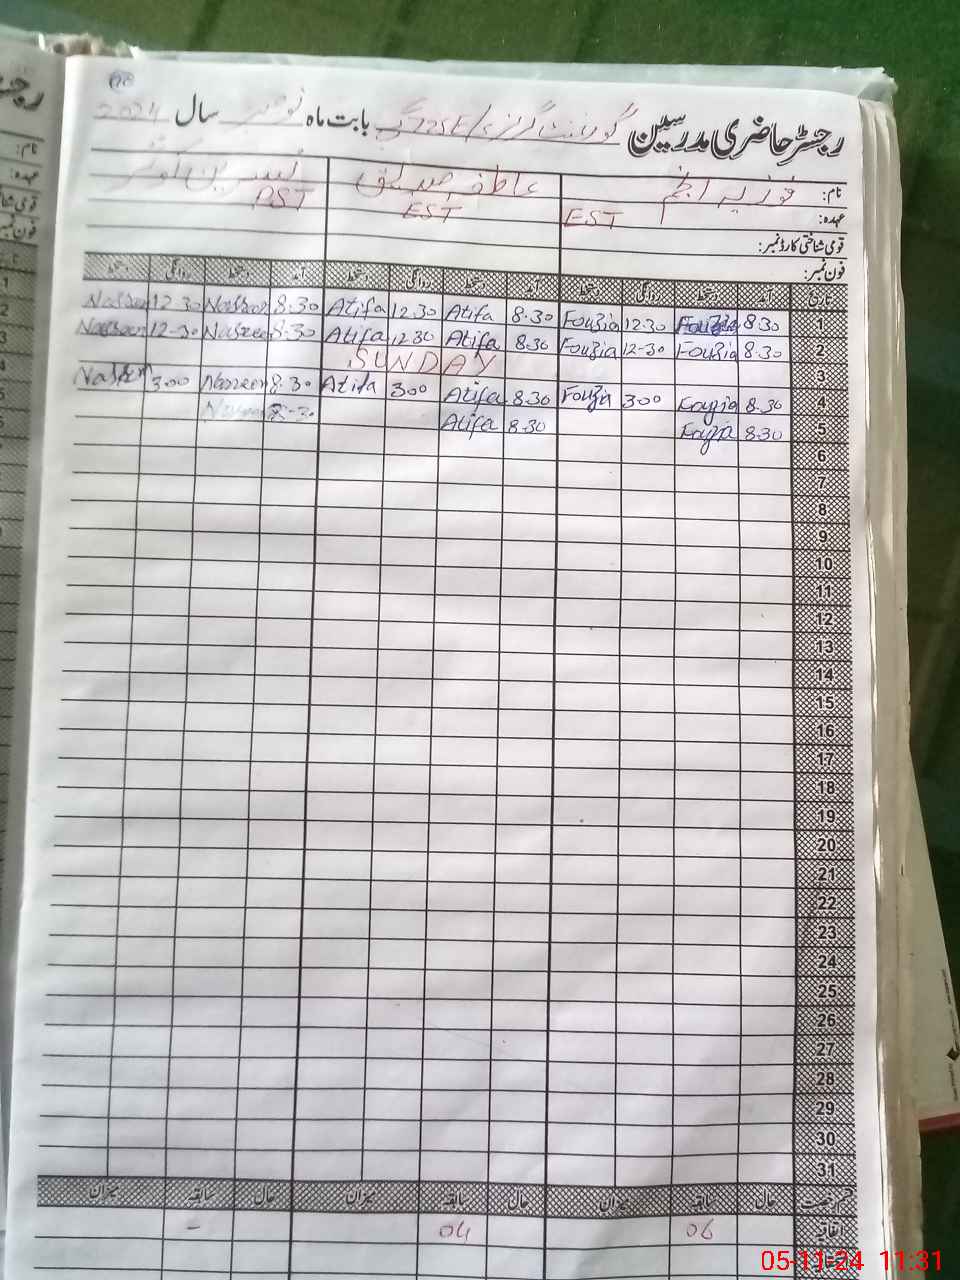 رجسٹر حاضری مدرسین گورنمنٹ گرلز بابت ماہ نومبر سال 2024
نام: فوزیہ انجم عاطفہ صدیق نسرین کوثر
عہدہ: EST EST PST
قومی شناختی کارڈ نمبر:
فون نمبر:
تاریخ آمد دستخط روانگی دستخط آمد دستخط روانگی دستخط آمد دستخط روانگی دستخط
1 8.30 Fouzia 12.30 Fouzia 8.30 Atifa 12.30 Atifa 8.30 Nasreen 12.30 Nasreen
2 8.30 Fouzia 12-30 Fouzia 8.30 Atifa 12.30 Atifa 8.30 Nasreen 12-30 Nasreen
3 SUNDAY
4 8.30 Fouzia 300 Fouzia 8.30 Atifa 300 Atifa 8.30 Nasreen 300 Nasreen
5 8.30 Fouzia 8.30 Atifa 8-30 Nasreen
6
7
8
9
10
11
12
13
14
15
16
17
18
19
20
21
22
23
24
25
26
27
28
29
30
31
قسم رخصت حال سابقہ میزان حال سابقہ میزان حال سابقہ میزان
اتفاقیہ 06 04 -
05-11-24 11:31